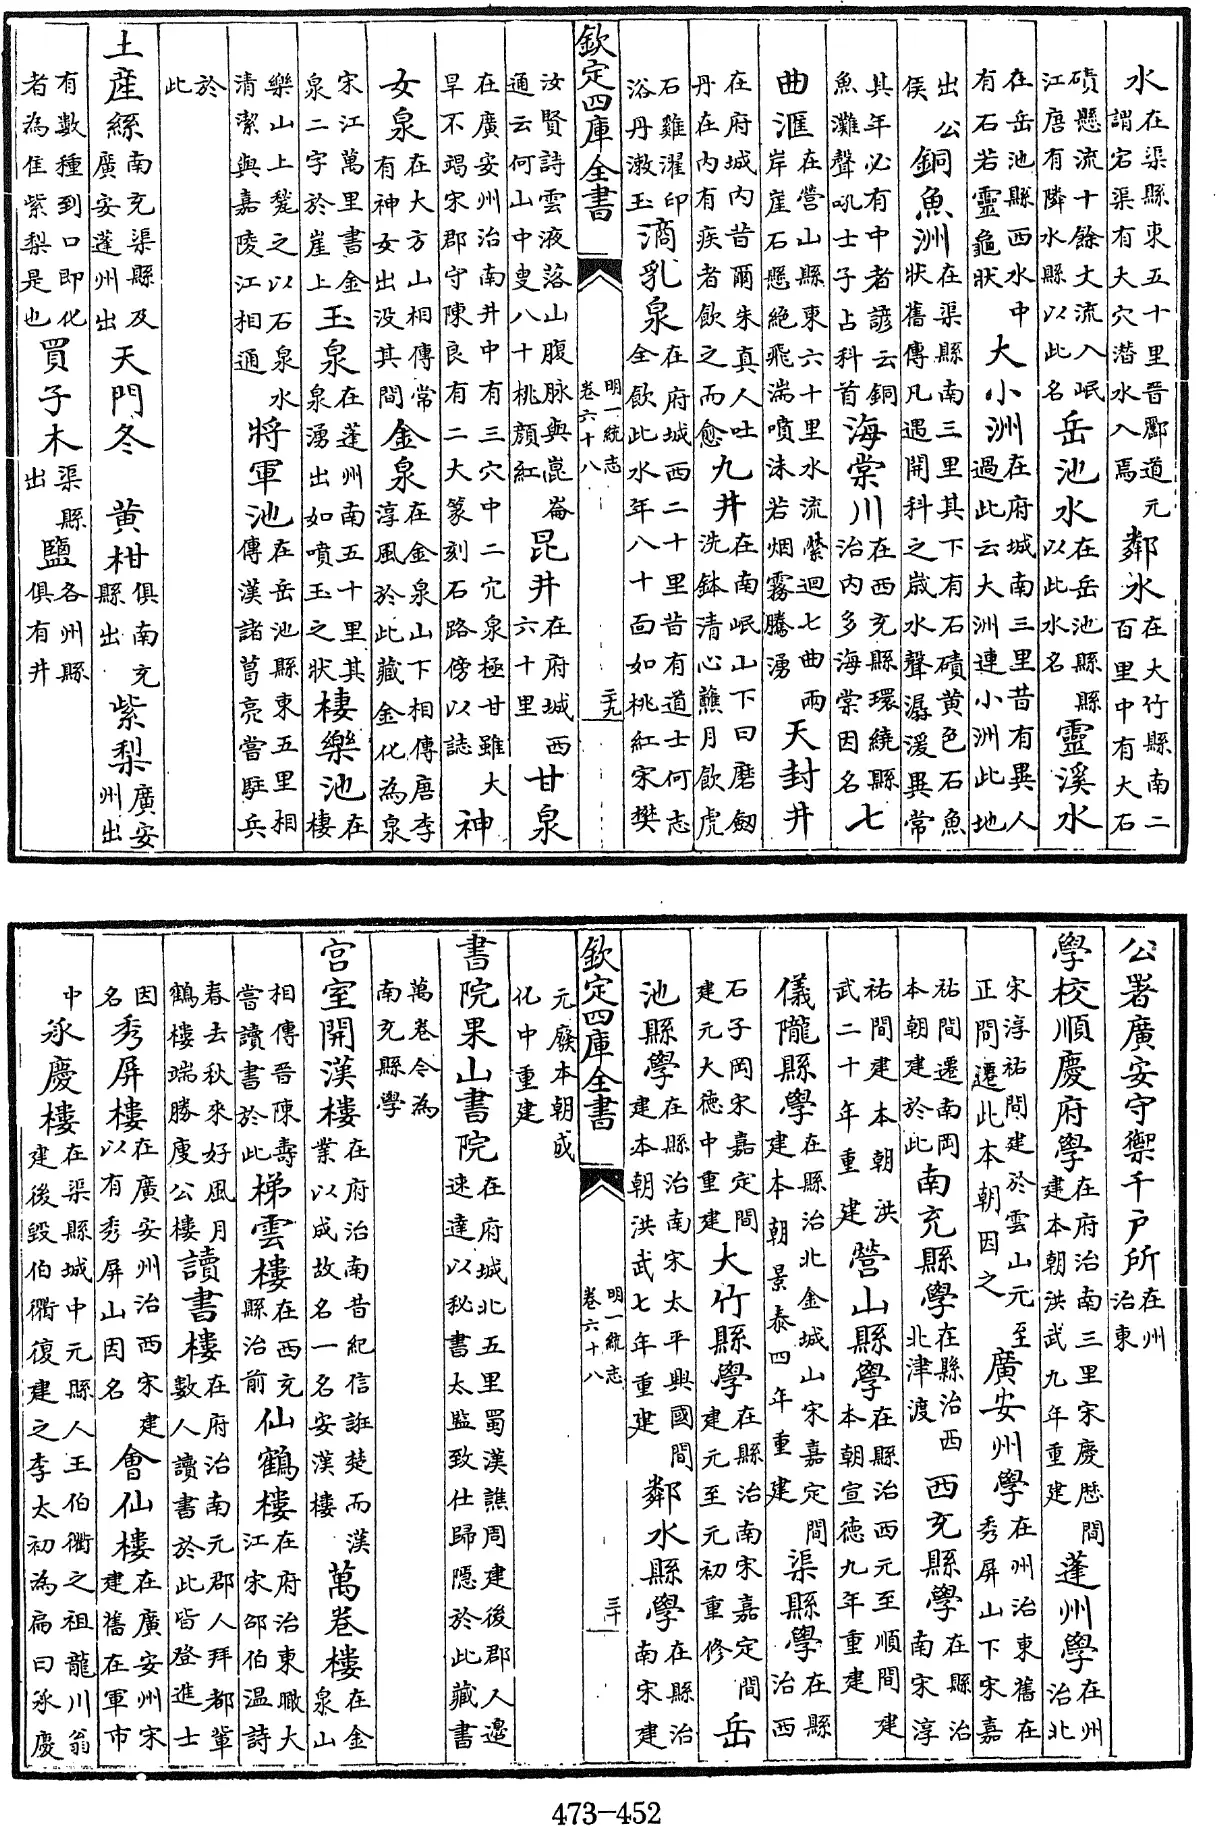 水在渠縣東五十里晉酈道元謂宕渠有大穴潜水入焉鄰水在大竹縣南二百里中有大石
磧懸流十餘丈流入岷江唐有隣水縣以此名岳池水在岳池縣縣以此水名靈溪水
在岳池縣西水中有石若靈龜狀大小洲在府城南三里昔有異人過此云大洲連小洲此地
出公侯銅魚洲在渠縣南三里其下有石磧黄色石魚狀舊傳凡遇開科之嵗水聲潺湲異常
其年必有中者諺云銅魚灘聲吼士子占科首海棠川在西充縣環繞縣治内多海棠因名七
曲滙在營山縣東六十里水流縈迴七曲兩岸崖石懸絶飛湍噴沫若烟霧騰湧天封井
在府城内昔爾朱真人吐丹在内有疾者飲之而愈九井在南岷山下曰磨劔洗鉢清心蘸月飲虎
石雞濯印浴丹漱玉滴乳泉在府城西二十里昔有道士何志全飲此水年八十面如桃紅宋樊
欽定四庫全書 明一統志卷六十八 二九
汝賢詩雲液落山腹脉與崑崙通云何山中叟八十桃顔紅昆井在府城西六十里甘泉
在廣安州治南井中有三穴中二穴泉極甘雖大旱不竭宋郡守陳良有二大篆刻石路傍以誌神
女泉在大方山相傳常有神女出没其間金泉在金泉山下相傳唐李淳風於此藏金化為泉
宋江萬里書金泉二字於崖上玉泉在蓬州南五十里其泉湧出如噴玉之狀棲樂池在棲
樂山上甃之以石泉水清潔與嘉陵江相通將軍池在岳池縣東五里相傳漢諸葛亮嘗駐兵
於此
土産絲南充渠縣及廣安蓬州出天門冬 黄柑俱南充縣出紫梨廣安州出
有數種到口即化者為佳紫梨是也買子木渠縣出鹽各州縣俱有井
公署廣安守禦千户所在州治東
學校順慶府學在府治南三里宋慶歴間建本朝洪武九年重建蓬州學在州治北
宋淳祐間建於雲山元至正間遷此本朝因之廣安州學在州治東舊在秀屏山下宋嘉
祐間遷南岡本朝建於此南充縣學在縣治西北津渡西充縣學在縣治南宋淳
祐間建本朝洪武二十年重建營山縣學在縣治西元至順間建本朝宣德九年重建
儀隴縣學在縣治北金城山宋嘉定間建本朝景泰四年重建渠縣學在縣治西
石子岡宋嘉定間建元大德中重建大竹縣學在縣治南宋嘉定間建元至元初重修岳
池縣學在縣治南宋太平興國間建本朝洪武七年重建鄰水縣學在縣治南宋建
欽定四庫全書 明一統志卷六十八 三十
元廢本朝成化中重建
書院果山書院在府城北五里蜀漢譙周建後郡人邉速達以秘書太監致仕歸隱於此藏書
萬卷今為南充縣學
宫室開漢樓在府治南昔紀信誑楚而漢業以成故名一名安漢樓萬卷樓在金泉山
相傳晉陳壽嘗讀書於此梯雲樓在西充縣治前仙鶴樓在府治東瞰大江宋邵伯温詩
春去秋來好風月鶴樓端勝庾公樓讀書樓在府治南元郡人拜都軰數人讀書於此皆登進士
因名秀屏樓在廣安州治西宋建以有秀屏山因名會仙樓在廣安州宋建舊在軍市
中永慶樓在渠縣城中元縣人王伯衢之祖龍川翁建後毁伯衢復建之李太初為扁曰永慶
473-452